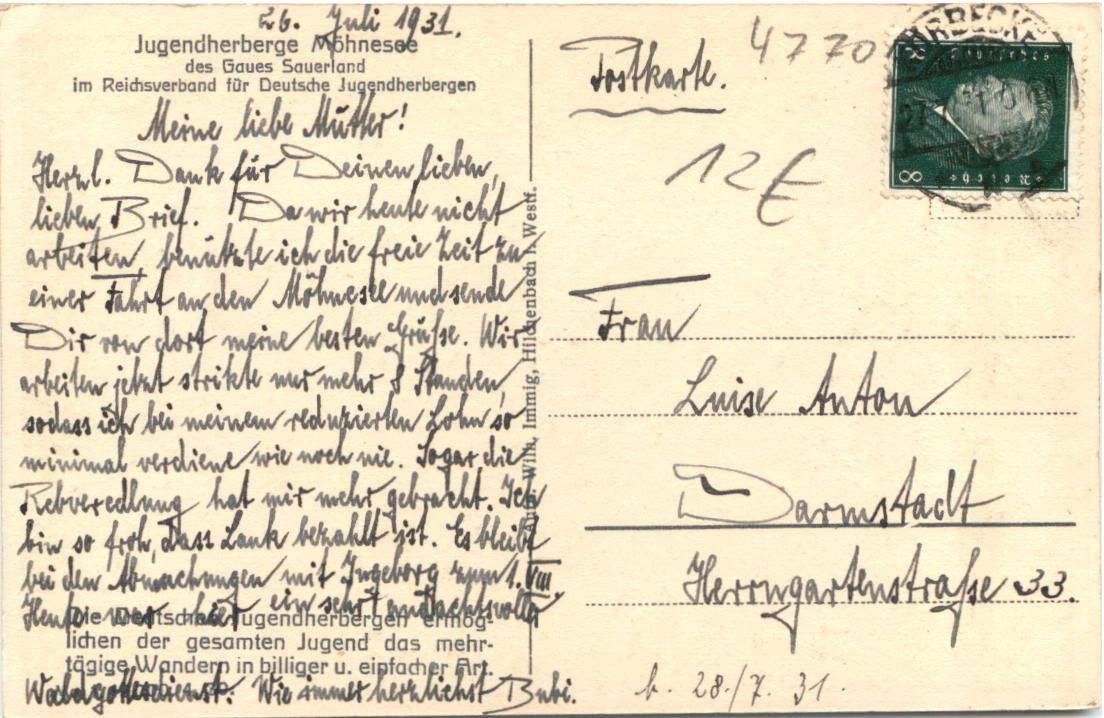 26. Juli 1931.
Jugendherberge Möhnesee
des Gaues Sauerland
im Reichsverband für Deutsche Jugendherbergen
Meine liebe Mutter!
Herzl. Dank für Deinen lieben,
lieben Brief. Da wir heute nicht
arbeiten, benützte ich die freie Zeit zu
einer Fahrt an den Möhnesee und sende
Dir von dort meine besten Grüße. Wir
arbeiten jetzt strikte nur mehr 8 Stunden,
sodass ich bei meinem reduzierten Lohn so
minimal verdiene wie noch nie. Sogar die
Rebveredlung hat mir mehr gebracht. Ich
bin so froh, dass Lank bezahlt ist. Es bleibt
bei den Abmachungen mit Ingeborg zum 1. VIII.
Heute war hier ein sehr andachtsvoller
Die Deutschen Jugendherbergen ermög-
lichen der gesamten Jugend das mehr-
tägige Wandern in billiger u. einfacher Art.
Waldgottesdienst. Wie immer herzlichst Bubi.
Wilh. Immig, Hilchenbach i. Westf.
Postkarte.
4770
12 £
8
8
Frau
Luise Anton
Darmstadt
Herrngartenstraße 33.
b. 28./7. 31.